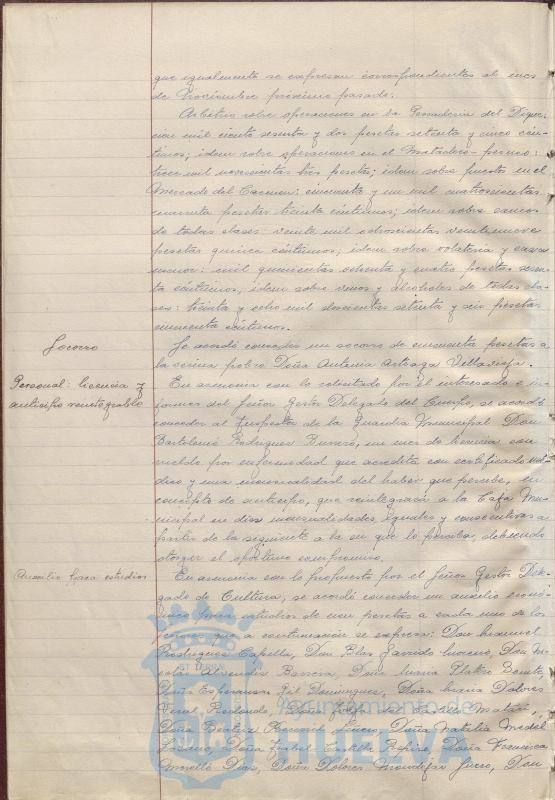 que igualmente se expresan correspondientes al mes
de Noviembre próximo pasado:
Arbitrio sobre operaciones en la Pescadería del
mil ciento sesenta y dos pesetas setenta y cinco cén-
timos; idem sobre operaciones en el Matadero
trece mil novecientas tres pesetas; idem sobre puestos en el
Mercado del Carmen: cincuenta y un mil cuatrocientas
cuarenta pesetas treinta céntimos; idem sobre carnes
de todas clases veinte mil ochocientas veintinueve
pesetas quince céntimos; idem sobre volatería y caza
menor: mil quinientas ochenta y cuatro pesetas sesen-
ta céntimos; idem sobre vinos y alcoholes de todas cla-
ses: treinta y ocho mil doscientas setenta y seis pesetas
cincuenta céntimos.
Socorro
Se acordó conceder un socorro de cincuenta pesetas a
la vecina pobre Doña Antonia Villadeja.
Personal: licencia y
anticipo reintegrable
En armonía con lo solicitado por el interesado e in-
formes del Señor Gestor Delegado del Cuerpo, se acordó
conceder al Inspector de la Guardia Municipal Don
Bartolomé Rodríguez Borrero, un mes de licencia con
sueldo por enfermedad que acredita con certificado mé-
dico y una mensualidad del haber que percibe, en
concepto de anticipo, que reintegrará a la Caja Mu-
nicipal en diez mensualidades iguales y consecutivas a
partir de la siguiente a la en que lo perciba, debiendo
otorgar el oportuno compromiso.
Auxilio para estudios
En armonía con lo propuesto por el Señor Gestor Dele-
gado de Cultura, se acordó conceder un auxilio econó-
mico para estudios de cien pesetas a cada uno de los
señores que a continuación se expresa: Don Manuel
Rodríguez Capilla, Don Blas Garrido Moreno, Don Ni-
colás Barrera, Doña María Benito,
Doña Esperanza Gil Domínguez, Doña María Dolores
Redondo, Doña
Doña Beatriz Doña Natalia Medel
Lozano, Doña Isabel Castilla Doña Francisca
Morello Díaz, Doña Dolores Don
Ayuntamiento de
HUELVA